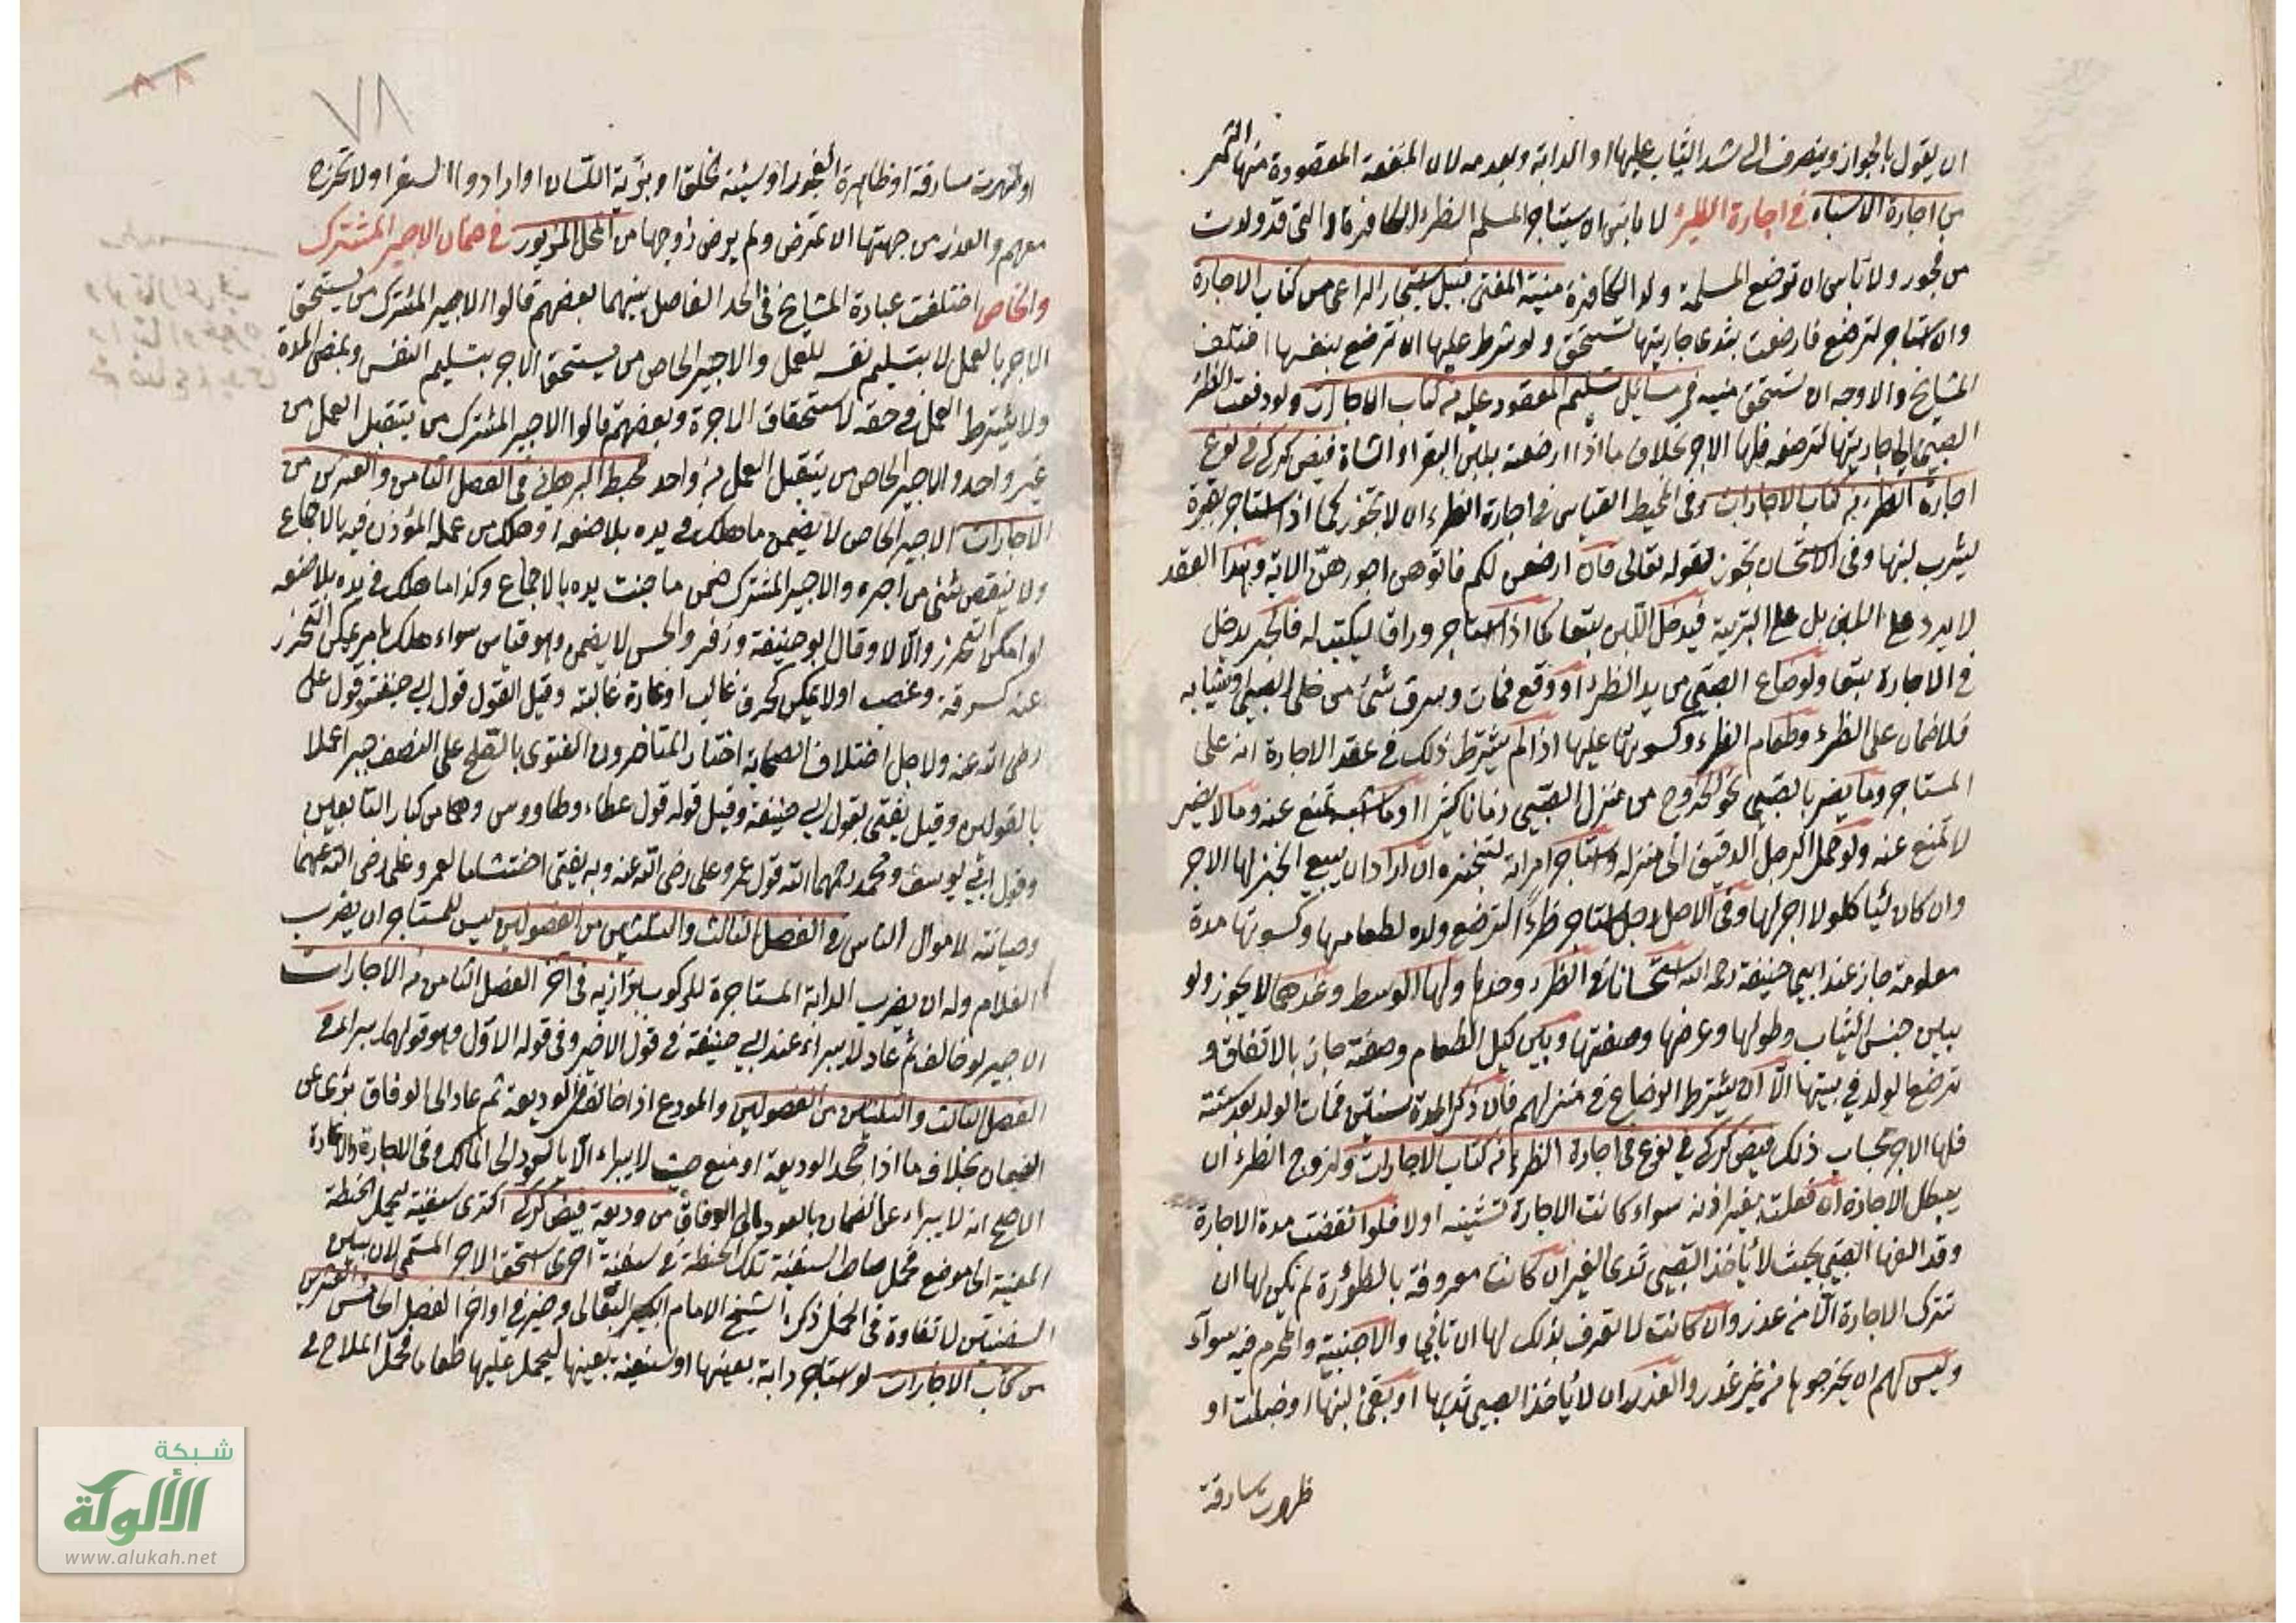 ان يقول بالجواز وينصرف الى شد الثياب عليها او الدابة وبعدمه لان المنفعة المقصودة منها الثمر
من اجارة الاشياء في اجارة الظئر لا باس ان يستاجر المسلم الظئر الكافرة والتي قد ولدت
من فجور ولا باس ان ترضع المسلمة ولد الكافرة منية المفتي قبيل استيجار الراعي من كتاب الاجارة
ولو استاجر لترضع فارضعت بثدي جاريتها تستحق ولو شرط عليها ان ترضع بنفسها اختلف
المشايخ والاوجه ان تستحق منيه في مسائل تسليم المعقود عليه من كتاب الاجارات ولو دفعت الظئر
الصبي الى جاريتها لترضعه فلها الاجر بخلاف ما اذا ارضعته بلبن البقر او الشاة فيض كركي في نوع
اجارة الظئر من كتاب الاجارات وفي المحيط القياس في اجارة الظئر ان لا تجوز كما اذا استاجر بقرة
ليشرب لبنها وفي الاستحسان تجوز لقوله تعالى فان ارضعن لكم فاتوهن اجورهن الاية وهذا العقد
لا يرد على اللبن بل على التربية فيدخل اللبن تبعا كما اذا استاجر وراقا ليكتب له فالحبر يدخل
في الاجارة تبعا ولو ضاع الصبي من يد الظئر او وقع فمات وسرق شئ من حلي الصبي او ثيابه
فلا ضمان على الظئر وطعام الظئر وكسوتها عليها اذا لم يشترط ذلك في عقد الاجارة انه على
المستاجر وما يضر بالصبي نحو الخروج من منزل الصبي زمانا كثيرا وما اشبه تمنع عنه وما لا يضر
لا تمنع عنه ولو حمل الرجل الدقيق الى منزله واستاجر امراته لتخبزه ان اراد ان يبيع الخبز لها الاجر
وان كان لياكلوا لا اجر لها وفي الاصل رجل استاجر ظئرا لترضع ولده لطعامها وكسوتها مدة
معلومة جاز عند ابي حنيفة رحمه الله استحسانا في الظئر وحدها ولها الوسط وعندهما لا يجوز ولو
بين جنس الثياب وطولها وعرضها وصفتها وبين كيل الطعام وصفته جاز بالاتفاق و
ترضع الولد في بيتها الا ان يشترط الرضاع في منزلهم فان ذكر المدة سنتين فمات الولد بعد سنة
فلها الاجر بحساب ذلك فيض كركي في نوع في اجارة الظئر من كتاب الاجارات ولزوج الظئر ان
يبطل الاجارة ان فعلت بغير اذنه سواء كانت الاجارة تشينه او لا فلو انقضت مدة الاجارة
وقد الفها الصبي بحيث لا ياخذ الصبي ثدي الغير ان كانت معروفة بالظؤرة لم يكن لها ان
تترك الاجارة الا من عذر وان كانت لا تعرف بذلك لها ان تابى والاجنبية والمحرم فيه سوآء
وليس لهم ان يخرجوها من غير عذر والعذر ان لا ياخذ الصبي ثديها او بقئ لبنها او حبلت او
ظهرت سارقة
٧٨
او ظهرت سارقة او ظاهرة الفجور او سيئة الخلق او بذية اللسان او ارادوا السفر او لا تخرج
معهم والعذر من جهتها ان تمرض ولم يرض زوجها من المحل المزبور في ضمان الاجير المشترك
والخاص اختلفت عبارة المشايخ في الحد الفاصل بينهما بعضهم قالوا الاجير المشترك من يستحق
الاجر بالعمل لا بتسليم نفسه للعمل والاجير الخاص من يستحق الاجر بتسليم النفس وبمضي المدة
ولا يشترط العمل في حقه لاستحقاق الاجرة وبعضهم قالوا الاجير المشترك من يتقبل العمل من
غير واحد والاجير الخاص من يتقبل العمل من واحد محيط البرهاني في الفصل الثامن والعشرين من
الاجارات الاجير الخاص لا يضمن ما هلك في يده بلا صنعه او هلك من عمله المؤذن فيه بالاجماع
ولا ينقص شئ من اجره والاجير المشترك ضمن ما جنت يده بالاجماع وكذا ما هلك في يده بلا صنعه
لو امكن التحرز والا لا وقال ابو حنيفة وزفر والحسن لا يضمن وهو قياس سواء هلك بامر يمكن التحرز
عنه كسرقة وغصب او لا يمكن كحرق غالب او غارة غالبة وقيل القول قول ابي حنيفة وقول علي
رضي الله عنه ولاجل اختلاف الصحابة اختار المتاخرون الفتوى بالصلح على النصف جبرا عملا
بالقولين وقيل يفتى بقول ابي حنيفة وقيل قوله قول عطاء وطاووس وهما من كبار التابعين
وقول ابي يوسف ومحمد رحمهما الله قول عمر وعلي رضي الله عنه وبه يفتى احتشاما لعمر وعلي رضي الله عنهما
وصيانة لاموال الناس في الفصل الثالث والثلثين من الفصولين ليس للمستاجر ان يضرب
الغلام وله ان يضرب الدابة المستاجرة للركوب بزازيه في آخر الفصل الثامن من الاجارات
الاجير لو خالف ثم عاد لا يبراء عند ابي حنيفة في قول الاخير وفي قوله الاول وهو قولهما يبراء في
الفصل الثالث والثلثين من الفصولين والمودع اذا خالف في الوديعة ثم عاد الى الوفاق برئ عن
الضمان بخلاف ما اذا جحد الوديعة او منع حيث لا يبراء الا بالرد الى المالك وفي الاجارة والاعارة
الاصح انه لا يبراء عن الضمان بالعود الى الوفاق من وديعة فيض كركي اكترى سفينة ليحمل الحنطة
المعينة الى موضع فحمل صاحب السفينة تلك الحنطة في سفينة اخرى استحق الاجر المسمى لان بين
السفينتين لا تفاوت في الحمل ذكره الشيخ الامام البقالي وغيره في اواخر الفصل الخامس والعشرين
من كتاب الاجارات لو استاجر دابة بعينها او سفينة بعينها ليحمل عليها طعاما فحمل الملاح في
شبكة
الألوكة
www.alukah.net